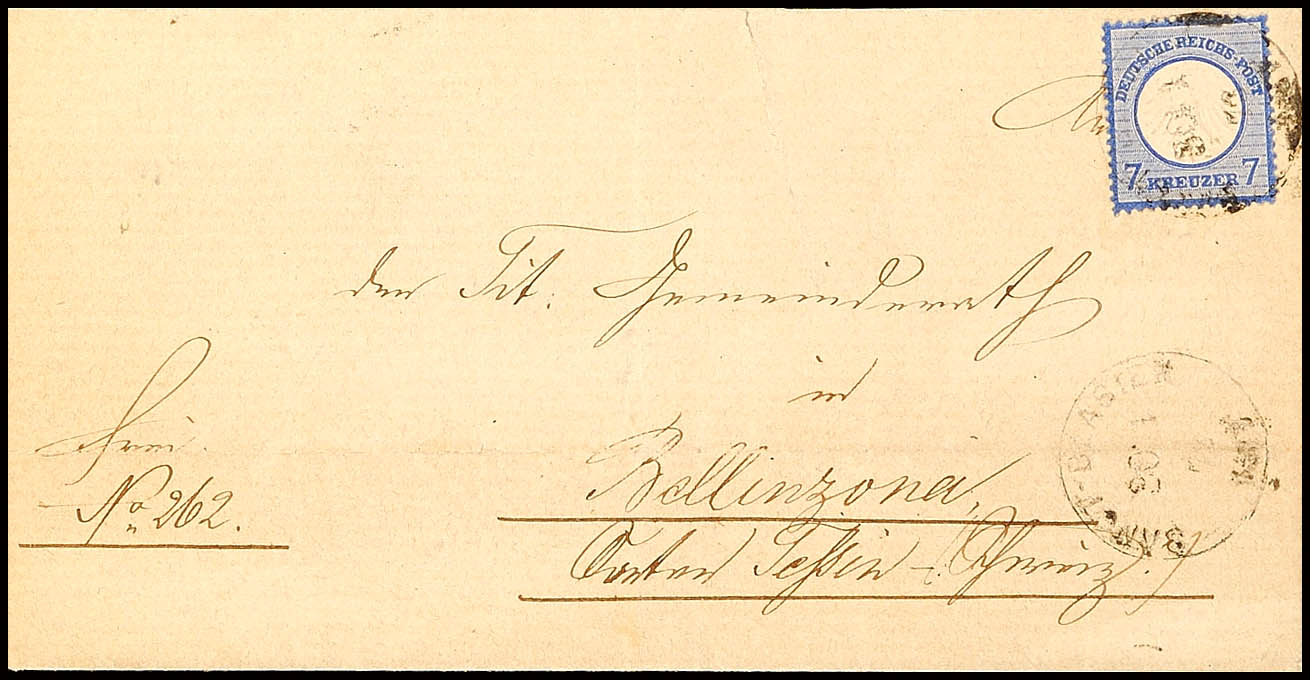 DEUTSCHE REICHS-POST
7 KREUZER 7
An
den Tit. Gemeinderath
in
Bellinzona,
Canton Tessin - (Schweiz.)
Frei.
No 262.
SANCT-BLASIEN